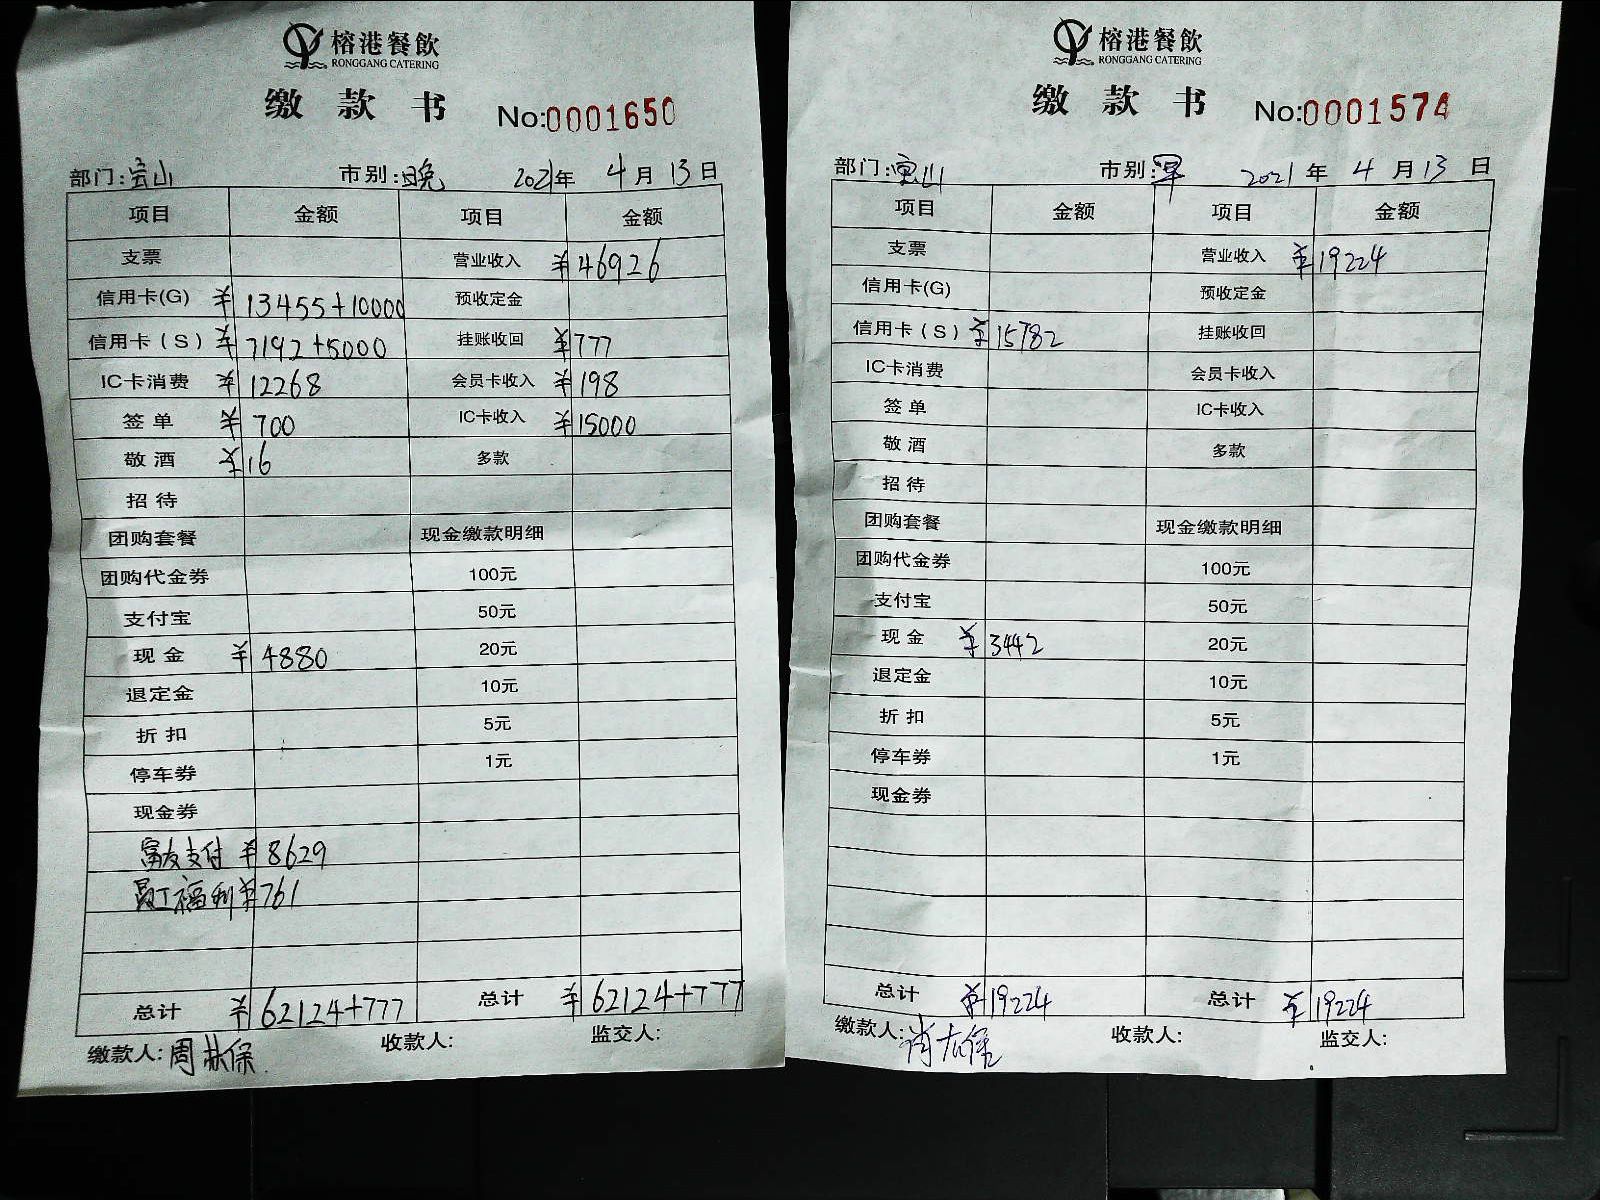 榕港餐飲
RONGGANG CATERING
缴款书 No:0001650
部门:宝山 市别:晚 2021年4月13日
项目 金额 项目 金额
支票 营业收入 ¥46926
信用卡(G) ¥13455+10000 预收定金
信用卡(S) ¥7192+5000 挂账收回 ¥777
IC卡消费 ¥12268 会员卡收入 ¥198
签单 ¥700 IC卡收入 ¥15000
敬酒 ¥16 多款
招待
团购套餐 现金缴款明细
团购代金券 100元
支付宝 50元
现金 ¥4880 20元
退定金 10元
折扣 5元
停车券 1元
现金券
富友支付 ¥8629
员工福利 ¥761
总计 ¥62124+777 总计 ¥62124+777
缴款人:周 保 收款人: 监交人:
榕港餐飲
RONGGANG CATERING
缴款书 No:0001574
部门:宝山 市别:早 2021年4月13日
项目 金额 项目 金额
支票 营业收入 ¥19224
信用卡(G) 预收定金
信用卡(S) ¥15782 挂账收回
IC卡消费 会员卡收入
签单 IC卡收入
敬酒 多款
招待
团购套餐 现金缴款明细
团购代金券 100元
支付宝 50元
现金 ¥3442 20元
退定金 10元
折扣 5元
停车券 1元
现金券
总计 ¥19224 总计 ¥19224
缴款人: 收款人: 监交人: